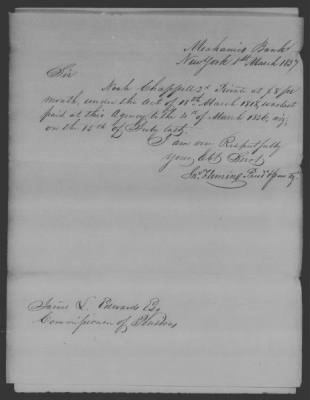 Mechanics Bank
New York 1st March 1837
Sir
Noah Chappell 2d Private at $8 pr
month, under the Act of 18th March 1818, was last
paid at this Agency to the 4th of March 1826,
on the 14th of July last.
I am very Respectfully
Your Obt Servt
Jno Fleming
James L. Edwards Esq
Commissioner of Pensions